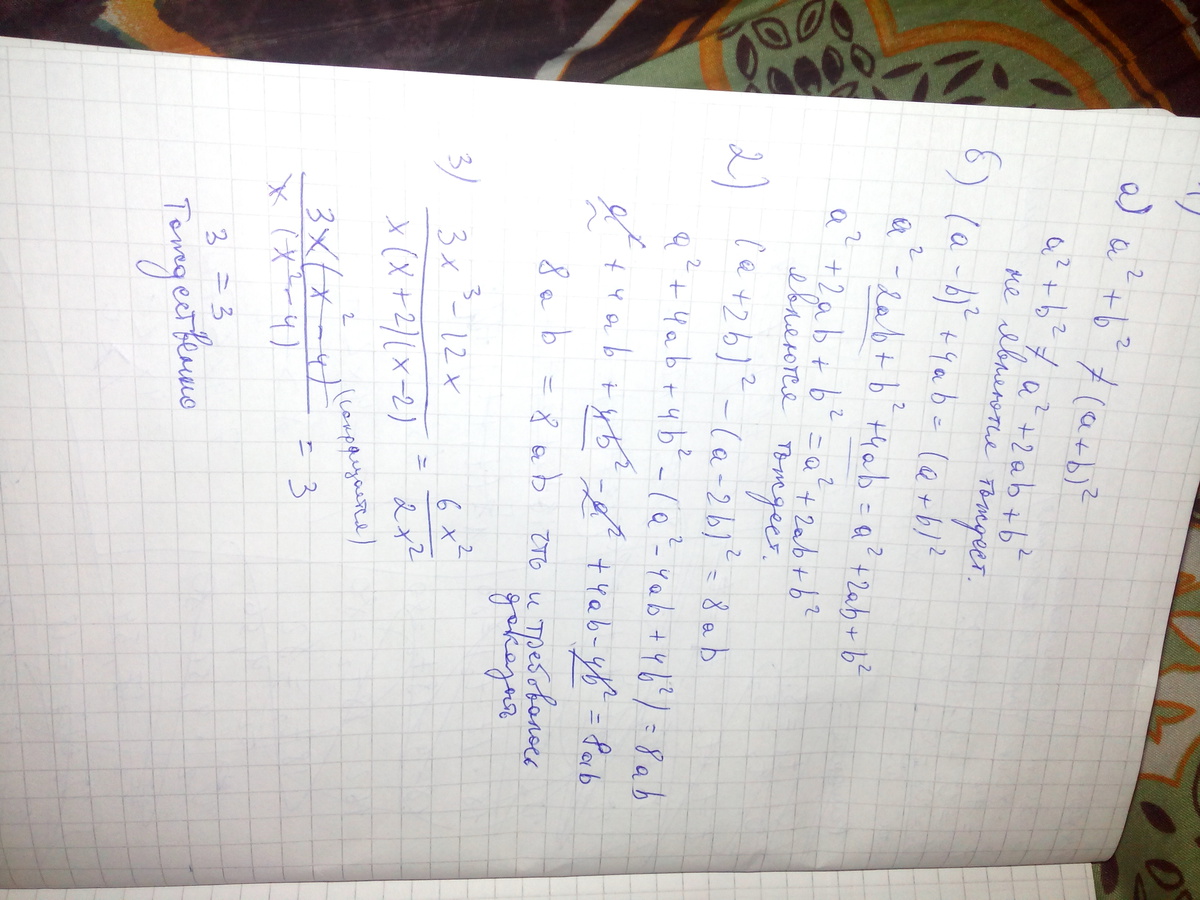 1)
а) a² + b² ≠ (a+b)²
a² + b² ≠ a² + 2ab + b²
не являются тождест.
б) (a - b)² + 4ab = (a + b)²
a² - 2ab + b² + 4ab = a² + 2ab + b²
a² + 2ab + b² = a² + 2ab + b²
являются тождест.
2) (a + 2b)² - (a - 2b)² = 8ab
a² + 4ab + 4b² - (a² - 4ab + 4b²) = 8ab
a² + 4ab + 4b² - a² + 4ab - 4b² = 8ab
8ab = 8ab что и требовалось
доказать
3) (3x³ - 12x) / (x(x+2)(x-2)) = 6x² / 2x²
3x(x² - 4) / (x(x² - 4)) (сокращается) = 3
3 = 3
Тождественно